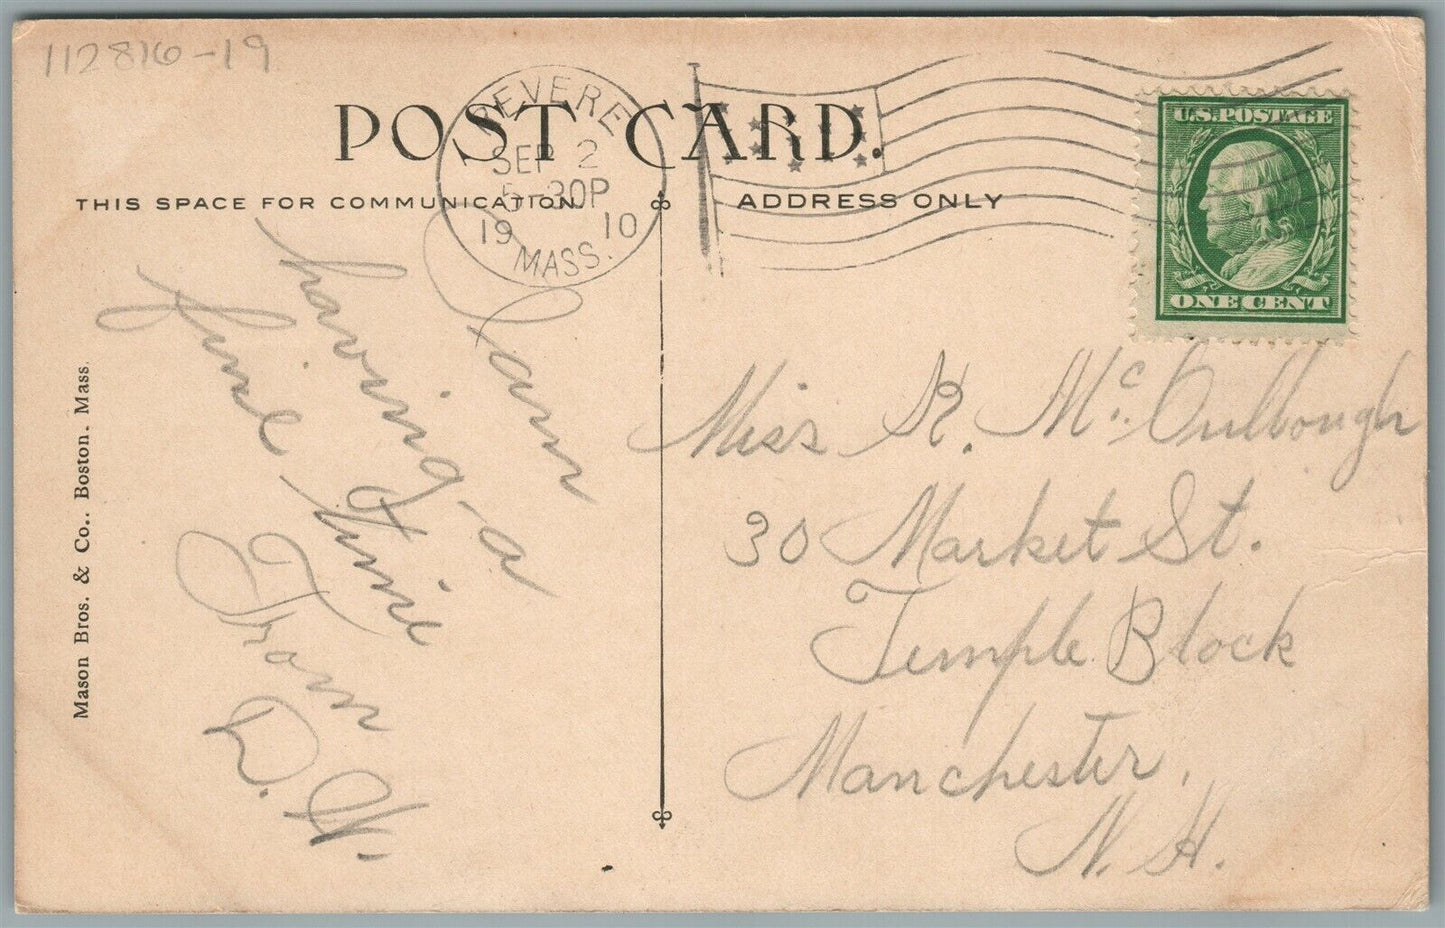 112816-19
POST CARD.
REVERE
SEP 2
5-30P
19 10
MASS.
U.S. POSTAGE
ONE CENT
THIS SPACE FOR COMMUNICATION.
ADDRESS ONLY
I am
having a
fine time
From
D. W.
Mason Bros. & Co., Boston. Mass.
Miss K. McCullough
30 Market St.
Temple Block
Manchester,
N. H.